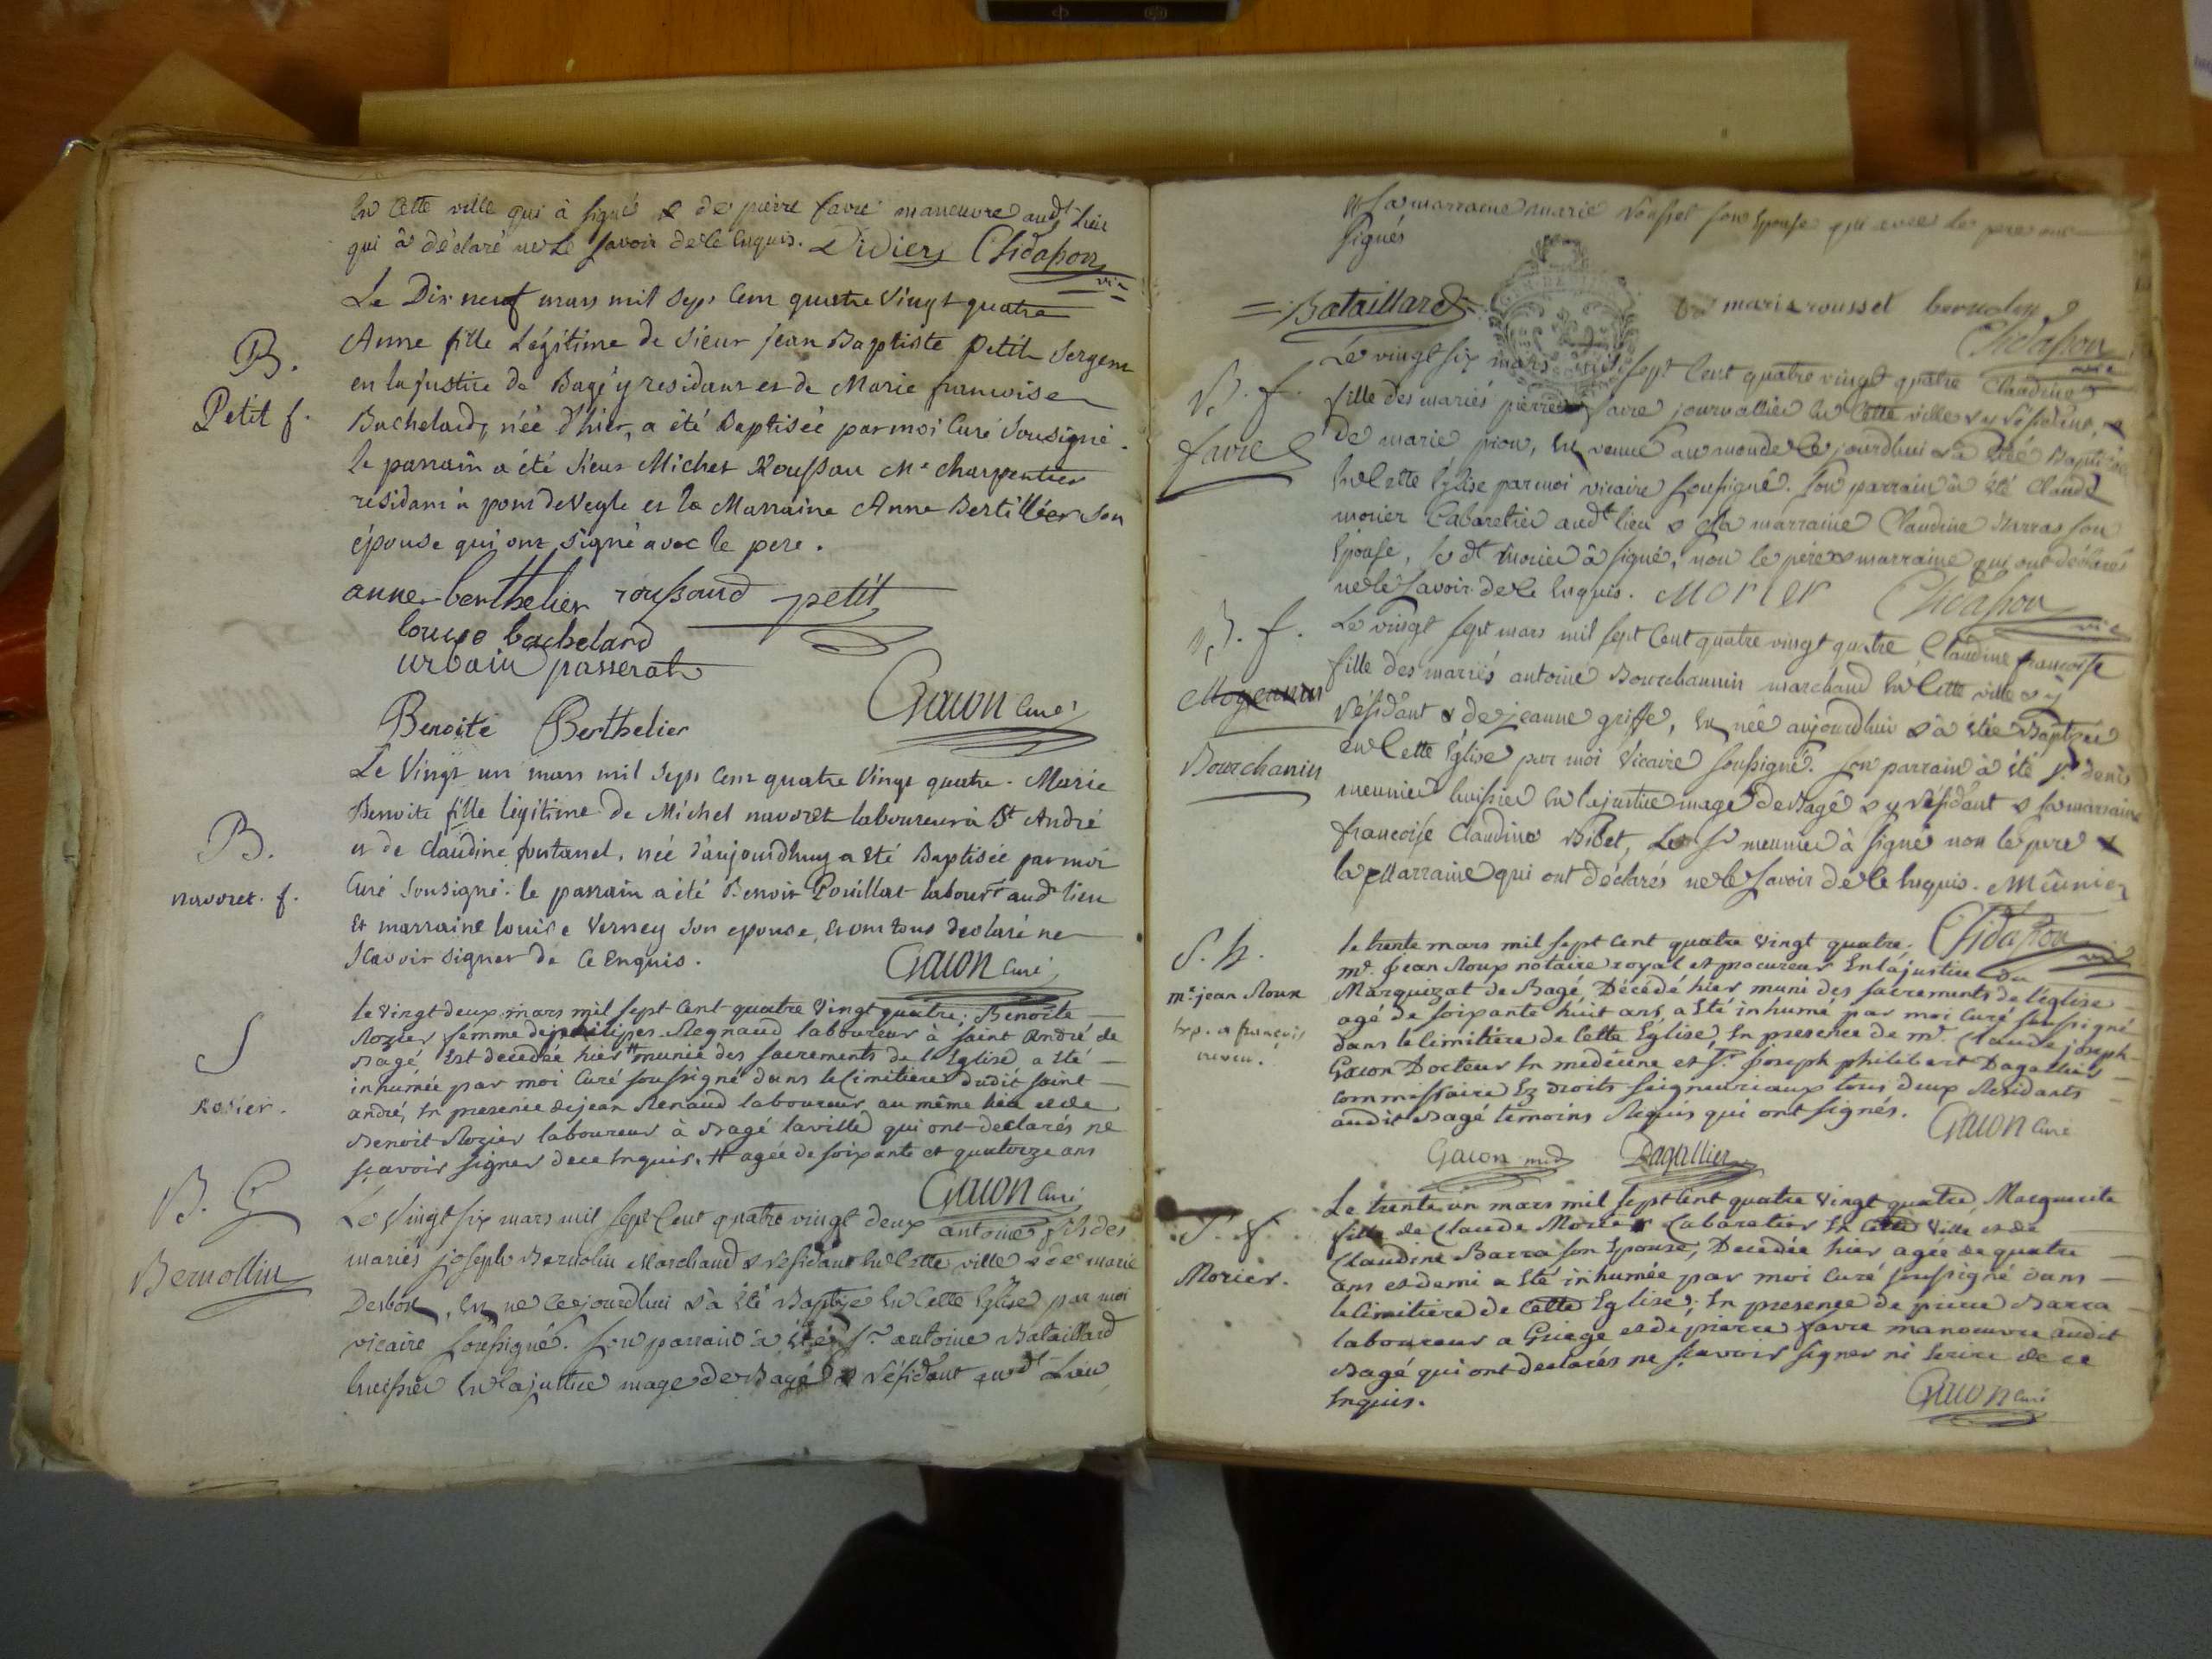 en Cette ville qui à signé & de pierre favre manœuvre audt Lieu
qui à déclaré ne Le savoir de Ce Enquis. Didiers Chidapon
vic
Le Dix neuf mars mil Sept Cent quatre Vingt quatre
B.
Petit f.
Anne fille Légitime de Sieur Jean Baptiste Petit Sergent
en la justice de Bagé y residant et de Marie francoise
Bachelard, née d'hier, a été Baptisée par moi Curé Sousigné.
le parrain a été Sieur Michel Roussau Me charpentier
residant à pont de Veyle et la Marraine Anne Bertillier Son
épouse qui ont signé avec le pere.
anne berthelier roussaud petit
louise bachelard
urbain passerat
Gacon Curé
Benoite Berthelier
Le Vingt un mars mil Sept Cent quatre Vingt quatre. Marie
Benoite fille légitime de Michel navoret laboureur à St André
B.
navoret. f.
et de Claudine fontanel, née d'aujourdhuy a été Baptisée par moi
Curé Sousigné. le parrain a été Benoit Pouillat labourr audt lieu
et marraine louise Verney Son epouse, et ont tous declaré ne
Scavoir Signer de Ce Enquis. Gacon Curé
S
Rosier.
le vingt deux mars mil sept Cent quatre vingt quatre; Benoite
Rozier femme de philipes Regnaud laboureur à saint André de
Bagé Est decedée hier # munie des sacrements de l'Eglise a été
inhumée par moi Curé soussigné dans le Cimitiere dudit saint
andré, En presence de jean Renaud laboureur au même lieu et de
Benoit Rozier laboureur à Bagé la ville qui ont declarés ne
sçavoir signer de ce Enquis. # agée de soixante et quatorze ans
Gacon Curé
B. G
Bernollin
Le Vingt six mars mil sept Cent quatre vingt deux antoine fils des
mariés joseph Bernolin Marchand & résidant En Cette ville & de marie
Desbox, En né Cejourdhui & à été Baptizé En Cette Eglise par moi
vicaire soussigné. son parrain à été sr. antoine Bataillard
huissier En la justice mage de Bagé & résidant audt Lieu
& sa marraine marie rousset son Epouse qui avec le pere ont
signés
Bataillard marie rousset bernolin
Chidapon
vic
B. f.
favre
Le vingt six mars mil sept Cent quatre vingt quatre Claudine
fille des mariés pierre favre journallier En Cette ville & y résident, &
de marie pion, En venue au monde Cejourdhui & à étée Baptisée
En Cette Eglise par moi vicaire soussigné. son parrain à été Claude
morier Cabaretier audt lieu & sa marraine Claudine Barras son
Epouse, le dt morier à signé, non le père & marraine qui ont déclarés
ne le savoir de Ce Enquis. Morier Chidapon
vic
B. f.
Bourchanin
Le vingt sept mars mil sept Cent quatre vingt quatre, Claudine francoise
fille des mariés antoine Bourchannin marchand En Cette ville & y
résidant & de jeanne griffe, En née aujourdhui & à étée Baptizée
en Cette Eglise par moi Vicaire soussigné. son parrain à été sr. denis
meunier huissier En la justice mage de Bagé & y résidant & sa marraine
francoise Claudine Bibet, Le Sr meunier à signé non le pere &
la Marraine qui ont déclarés ne le savoir de Ce Enquis. Meûnier
Chidapon
vic
S. h.
mr. jean Roux
le trente mars mil sept Cent quatre vingt quatre.
mr. jean Roux notaire royal et procureur En la justice du
Marquizat de Bagé Décédé hier muni des sacrements de l'église
agé de soixante huit ans, a été inhumé par moi Curé soussigné
dans le Cimitiére de Cette Eglise, En presence de mr. Claude joseph
Gacon Docteur En medécine et sr. joseph philibert Dagallier
Commissaire Ez droits seigneuriaux tous deux Residants
audit Bagé temoins Requis qui ont signés.
Gacon Curé
Gacon md Dagallier
S. f.
Morier.
Le trente un mars mil sept Cent quatre vingt quatre, Marguerite
fille de Claude Morier Cabaretier En Cette Ville et de
Claudine Barra son Epouse, Decedée hier agée de quatre
ans et demi a été inhumée par moi Curé soussigné dans
le Cimitiere de Cette Eglise; En presence de pierre Barra
laboureur a Griege et de pierre favre manœuvre audit
Bagé qui ont declarés ne sçavoir signer ni Ecrire de ce
Enquis.
Gacon Curé